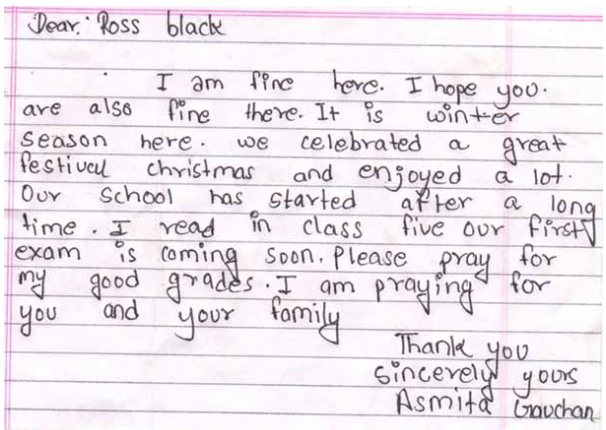 Dear: Ross black
I am fine here. I hope you.
are also fine there. It is winter
season here. we celebrated a great
festival christmas and enjoyed a lot.
Our school has started after a long
time. I read in class five our first
exam is coming soon. Please pray for
my good grades. I am praying for
you and your family
Thank you
Sincerely yours
Asmita Gauchan